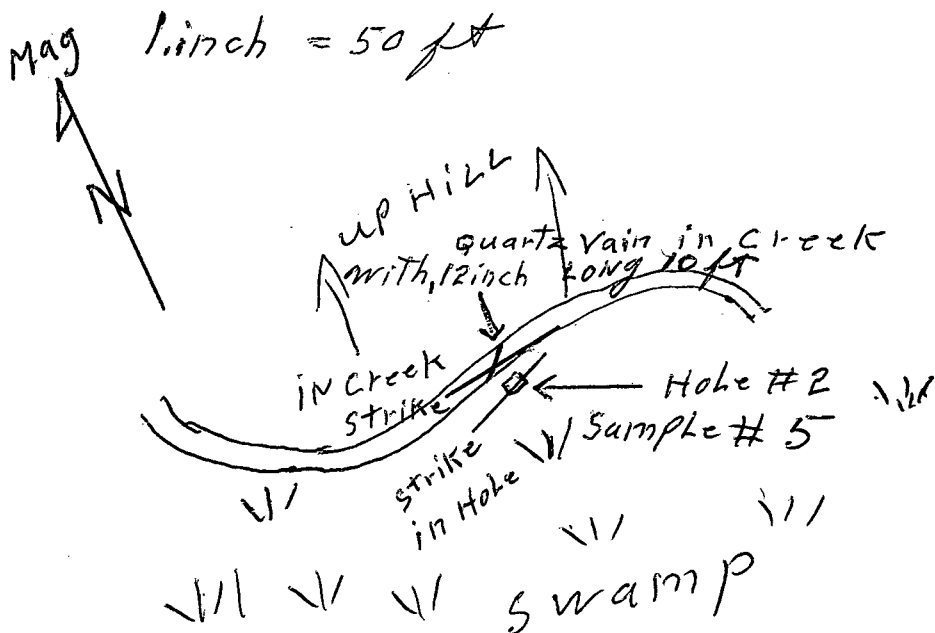 Mag 1.inch = 50 ft
N
UP HILL
quartz vain in Creek
with, 12inch Long 10 ft
iN Creek
strike
Hole #2
Sample # 5
strike
in Hole
Swamp